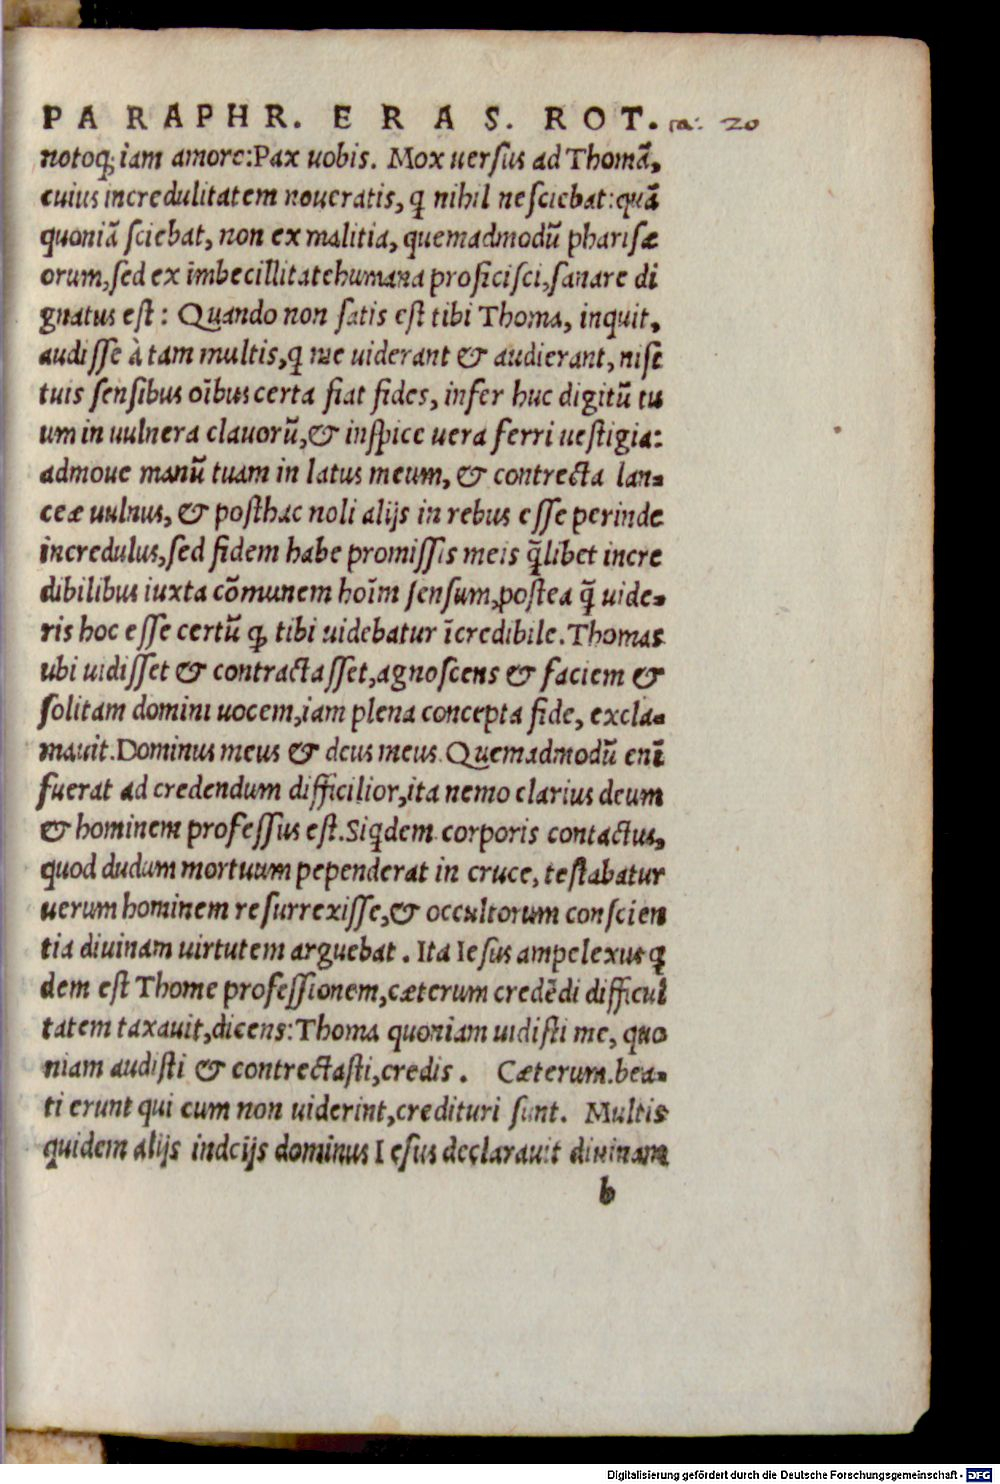 PARAPHR. ERAS. ROT.
notoq; iam amore: Pax uobis. Mox uersus ad Thomã,
cuius incredulitatem noueratis, q nihil nesciebat: quã
quoniã sciebat, non ex malitia, quemadmodũ pharisæ
orum, sed ex imbecillitate humana proficisci, sanare di
gnatus est: Quando non satis est tibi Thoma, inquit,
audisse à tam multis, q me uiderant & audierant, nisi
tuis sensibus oĩbus certa fiat fides, infer huc digitũ tu
um in uulnera clauorũ, & inspice uera ferri uestigia:
admoue manũ tuam in latus meum, & contrecta lan-
ceæ uulnus, & posthac noli alijs in rebus esse perinde
incredulus, sed fidem habe promissis meis q̃libet incre
dibilibus iuxta cõmunem hoĩm sensum, postea q̃ uide-
ris hoc esse certũ qꝫ tibi uidebatur ĩcredibile. Thomas
ubi uidisset & contractasset, agnoscens & faciem &
solitam domini uocem, iam plena concepta fide, excla-
mauit. Dominus meus & deus meus. Quemadmodũ enĩ
fuerat ad credendum difficilior, ita nemo clarius deum
& hominem professus est. Siqdem corporis contactus,
quod dudum mortuum pependerat in cruce, testabatur
uerum hominem resurrexisse, & occultorum conscien
tia diuinam uirtutem arguebat. Ita Iesus ampelexus q
dem est Thome professionem, cæterum credẽdi difficul
tatem taxauit, dicens: Thoma quoniam uidisti me, quo
niam audisti & contrectasti, credis. Cæterum. bea-
ti erunt qui cum non uiderint, credituri sunt. Multis
quidem alijs indcijs dominus Iesus declarauit diuinam
b
20
Digitalisierung gefördert durch die Deutsche Forschungsgemeinschaft - DFG